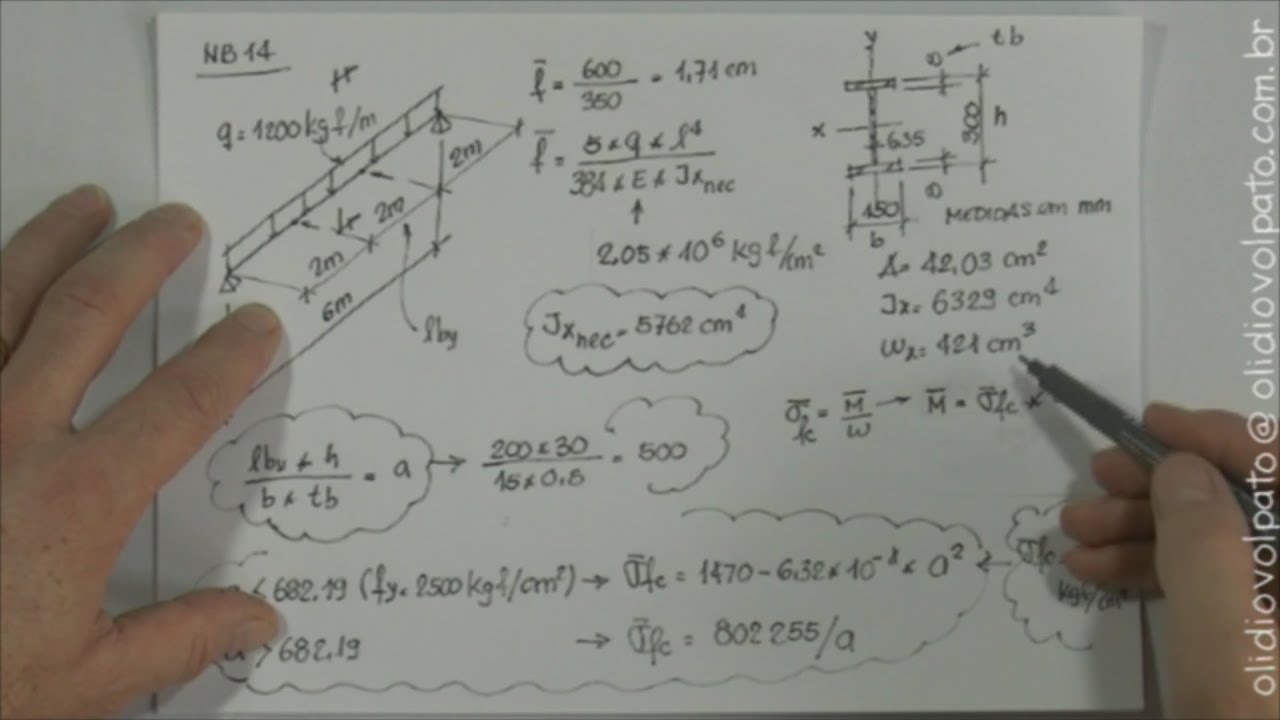 NB 14
q = 1200 kgf/m
2m
2m
2m
6m
lby
f̄ = 600/350 = 1,71 cm
f̄ = 5 × q × l⁴ / 384 × E × Jx nec
2,05 × 10⁶ kgf/cm²
Jx nec = 5762 cm⁴
y
tb
8
x
6,35
300
h
8
150
b
MEDIDAS em mm
A = 42,03 cm²
Jx = 6329 cm⁴
Wx = 421 cm³
σ̄fc = M̄/W → M̄ = σ̄fc ×
lby × h / b × tb = a → 200 × 30 / 15 × 0.8 = 500
< 682.19 (fy = 2500 kgf/cm²) → σ̄fc = 1470 - 6.32 × 10⁻⁴ × a² ← σ̄fc
kgf/cm²
> 682.19 → σ̄fc = 802 255/a
olidiovolpato @ olidiovolpato.com.br